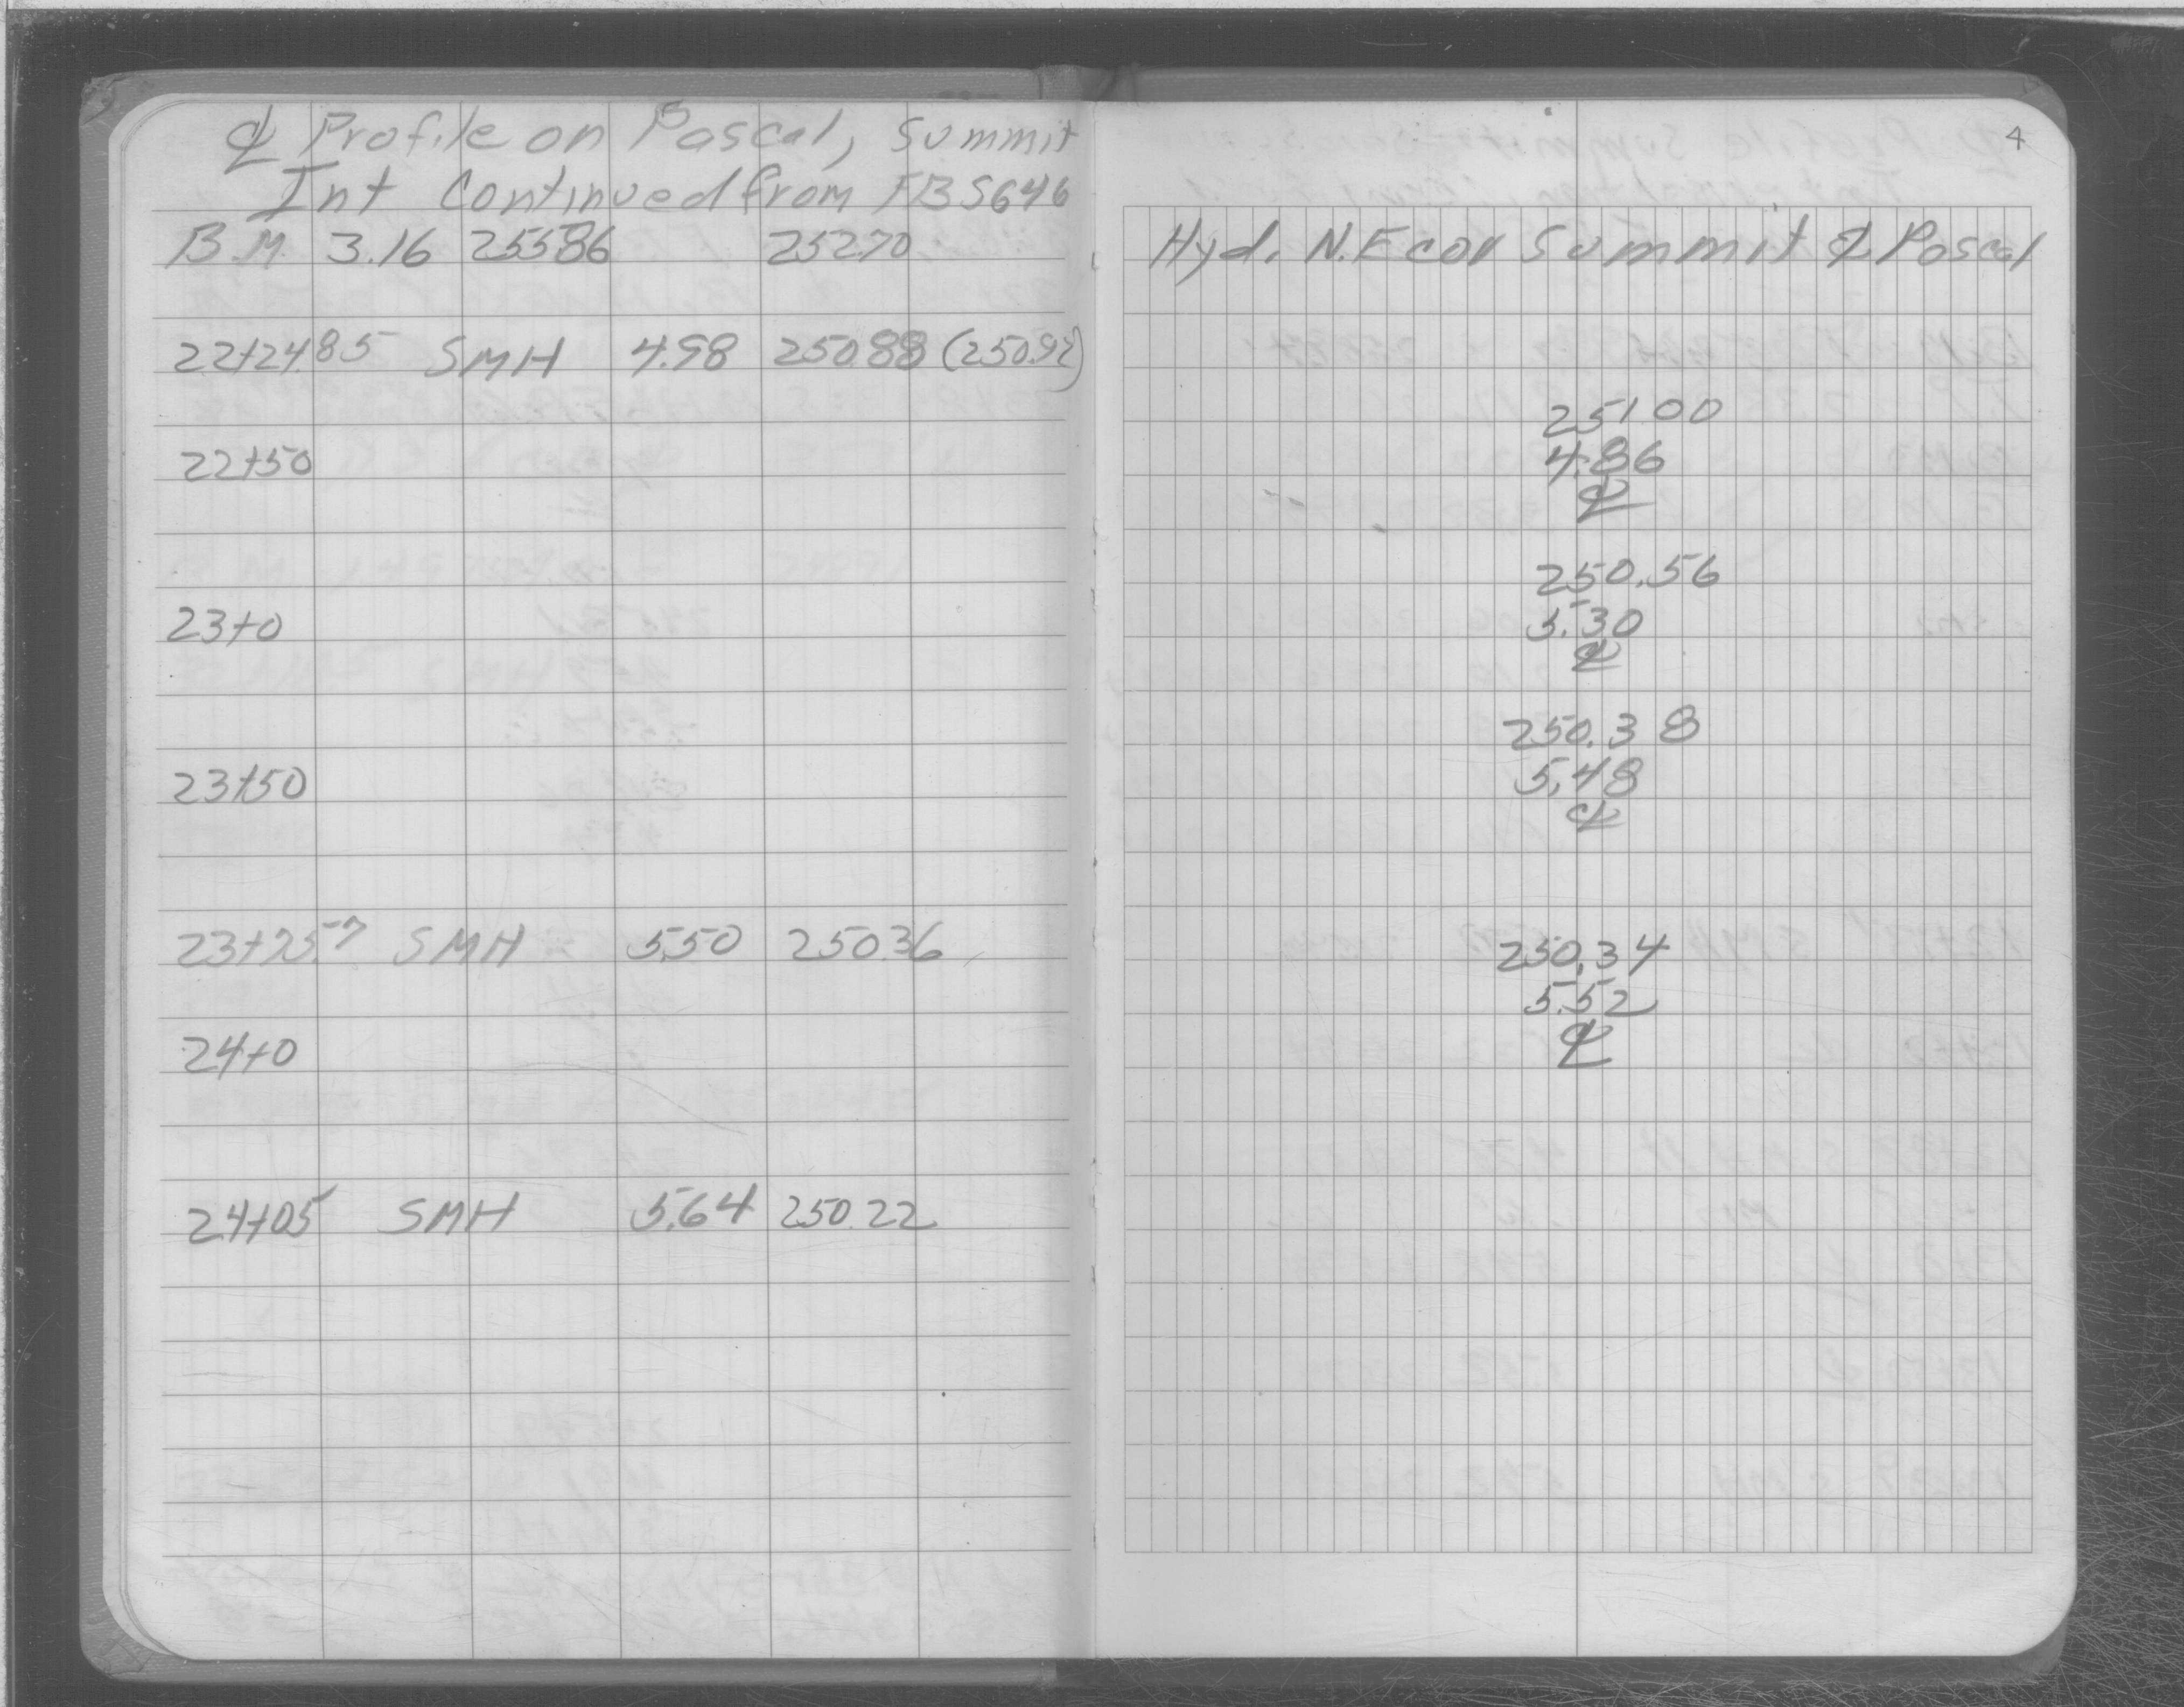 ℄ Profile on Pascal, Summit
Int Continued from FB 5646
B.M. 3.16 255.86 252.70
22+24.85 SMH 4.98 250.88 (250.92)
22+50
23+0
23+50
23+75.7 SMH 5.50 250.36
24+0
24+05 SMH 5.64 250.22
4
Hyd. N.E cor Summit & Pascal
251.00
4.86
℄
250.56
5.30
℄
250.38
5.48
℄
250.34
5.52
℄